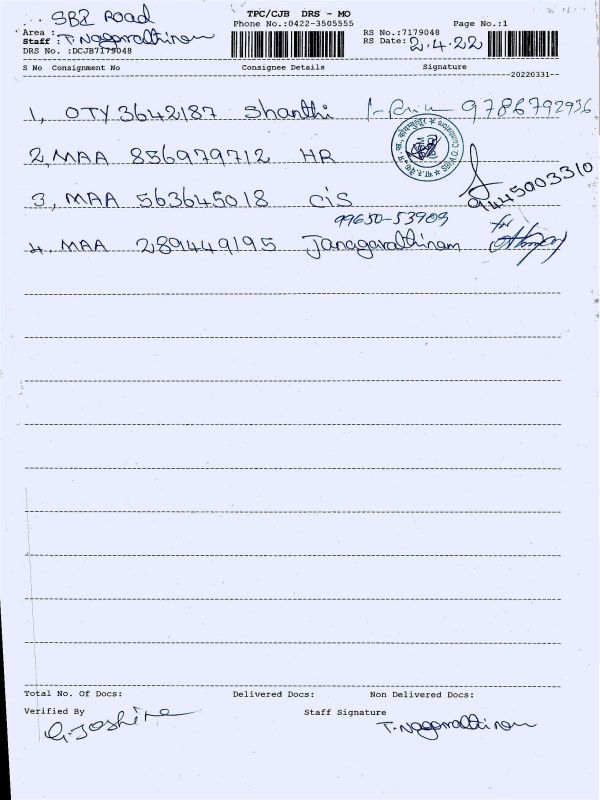 SBI Road
TPC/CJB DRS - MO
Area :
Phone No.:0422-3505555
Page No.:1
RS No.:7179048
Staff : T. Nagarathinam
RS Date: 2.4.22
DRS No. :DCJB7179048
S No Consignment No Consignee Details Signature
20220331
1, OTY 3642187 Shanthi 9786792936
2, MAA 856979712 HR
3, MAA 563645018 CIS 9445003310
99650-53909
4. MAA 289449195 Janagarathinam for
Total No. Of Docs: Delivered Docs: Non Delivered Docs:
Verified By Staff Signature
G. Joshi T. Nagarathinam